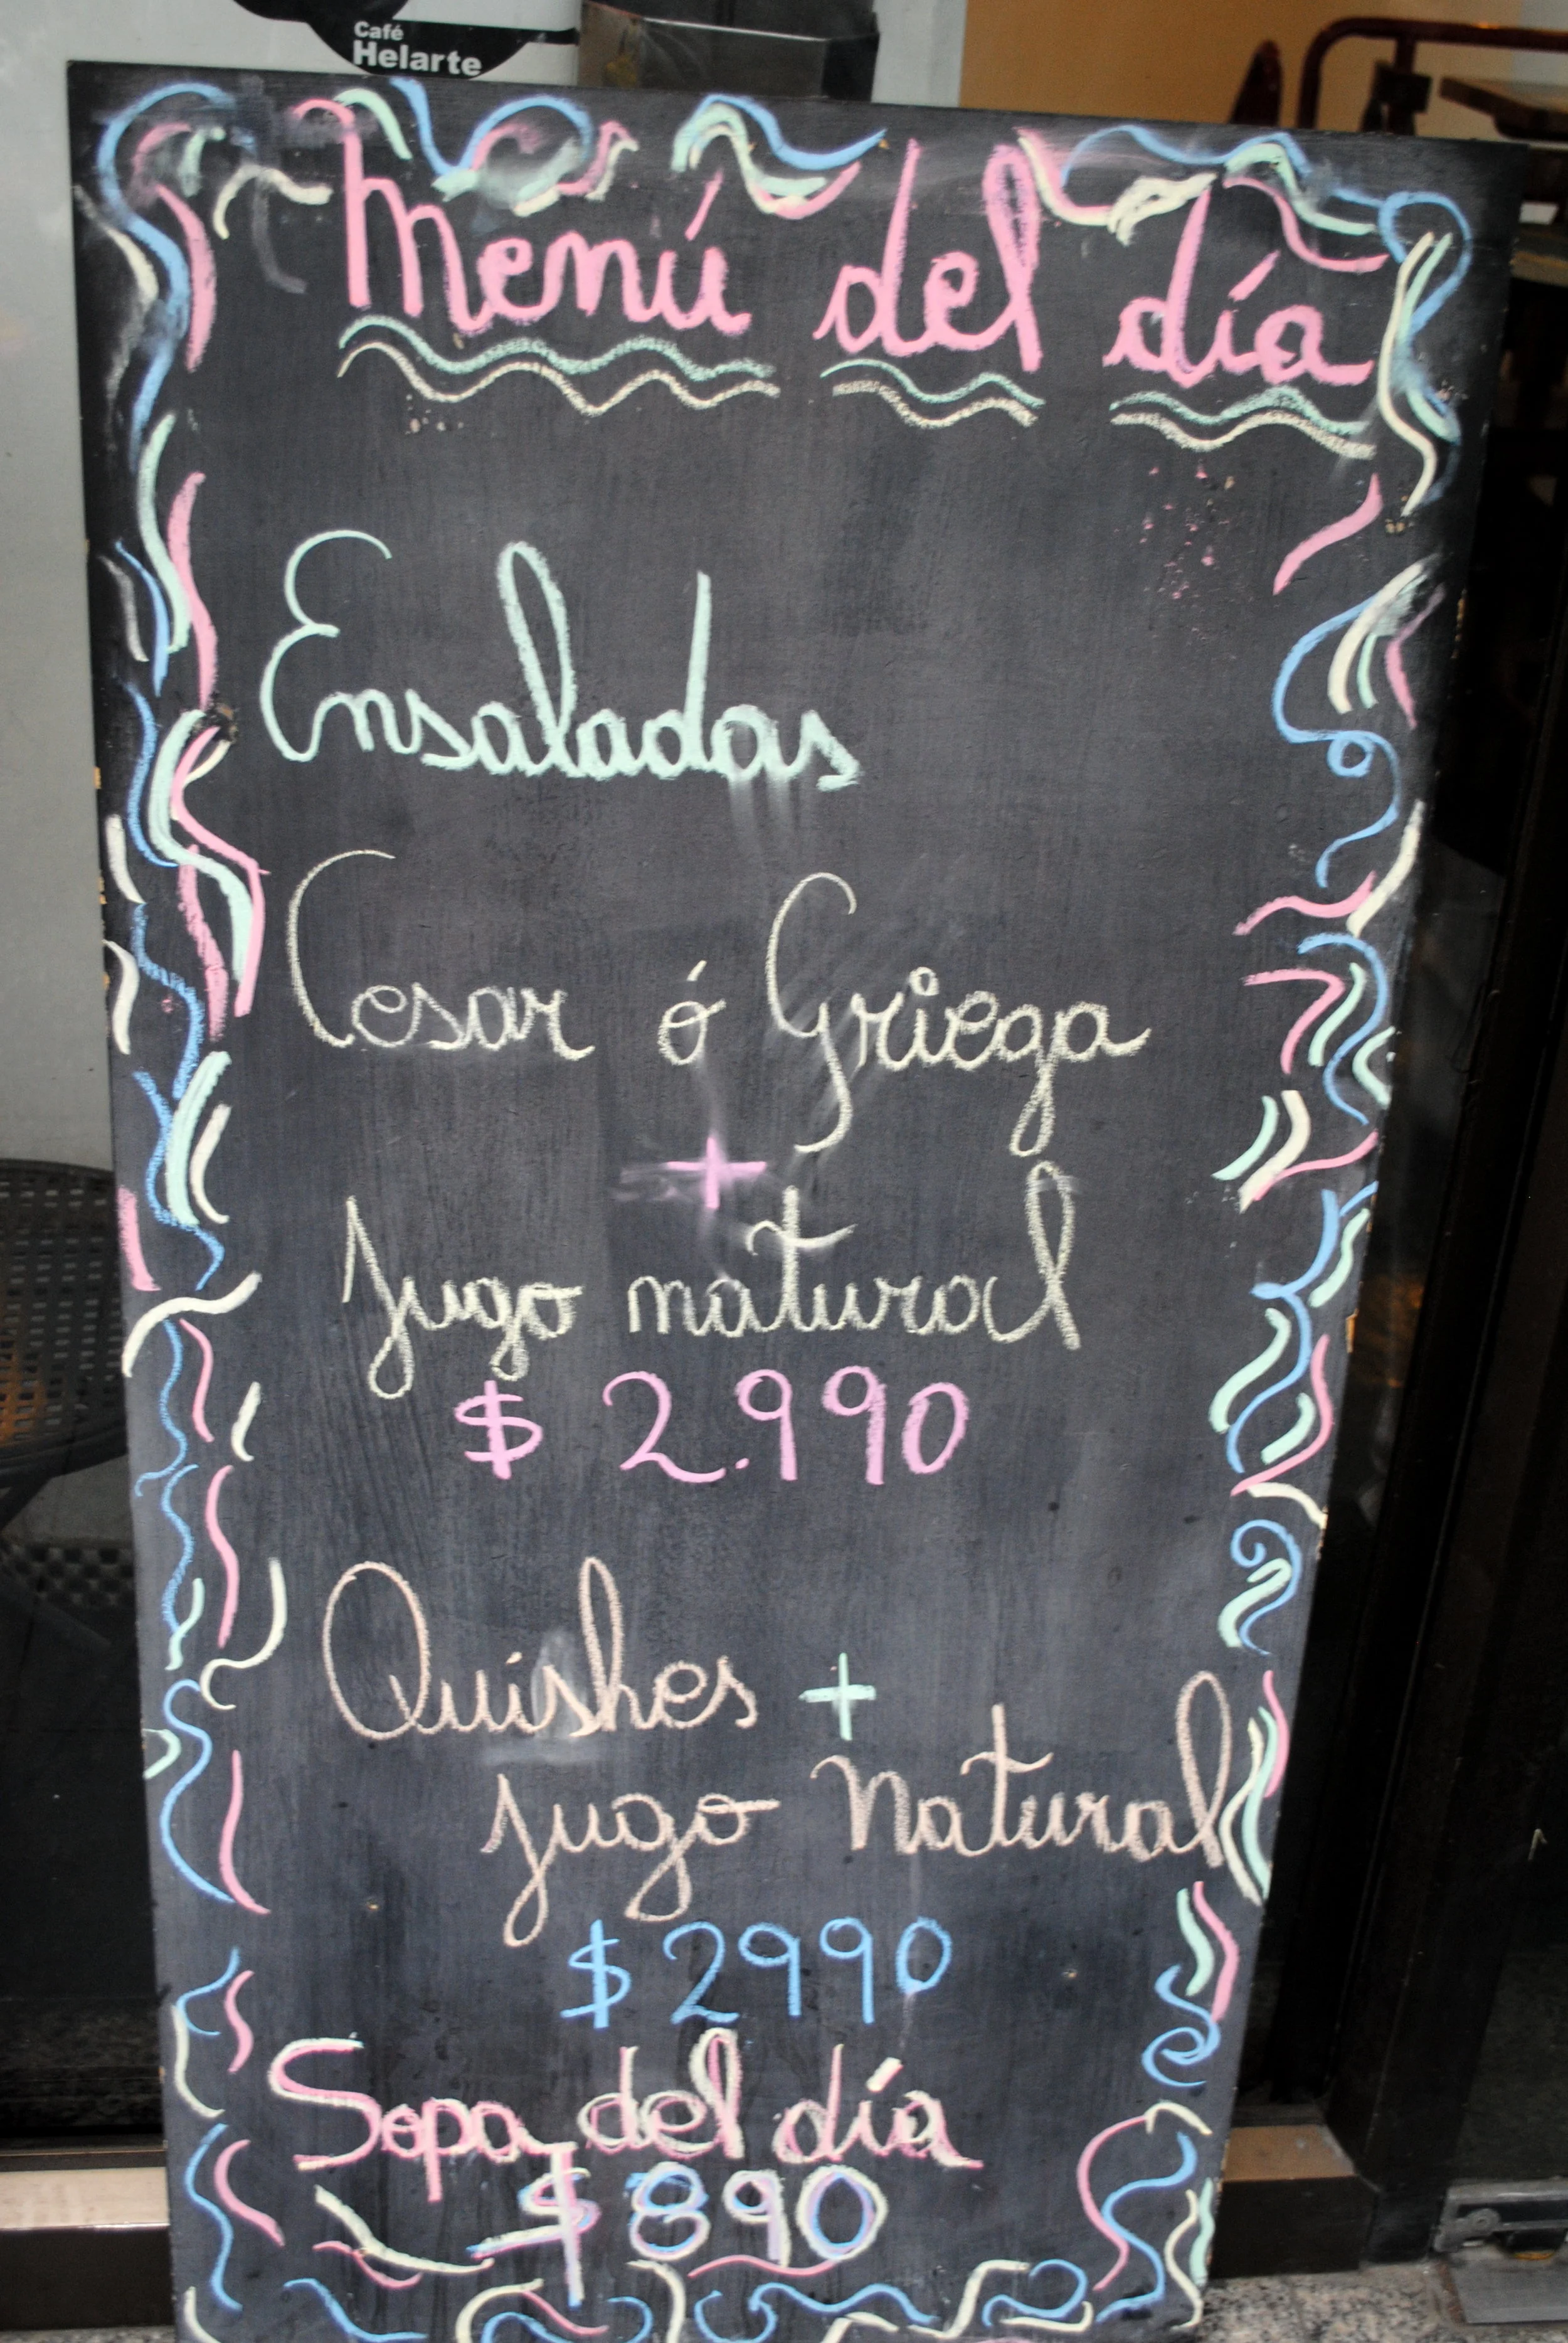 Café
Helarte
Menú del día
Ensaladas
Cesar ó Griega
+
Jugo natural
$ 2.990
Quishes +
Jugo Natural
$ 2990
Sopa del día
$ 890